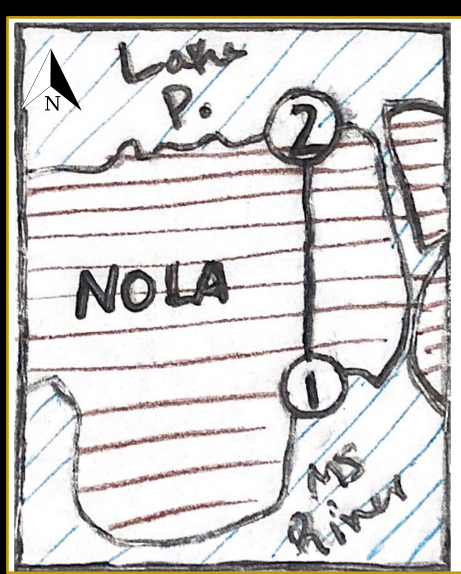 Lake
P.
N
2
NOLA
1
MS
River